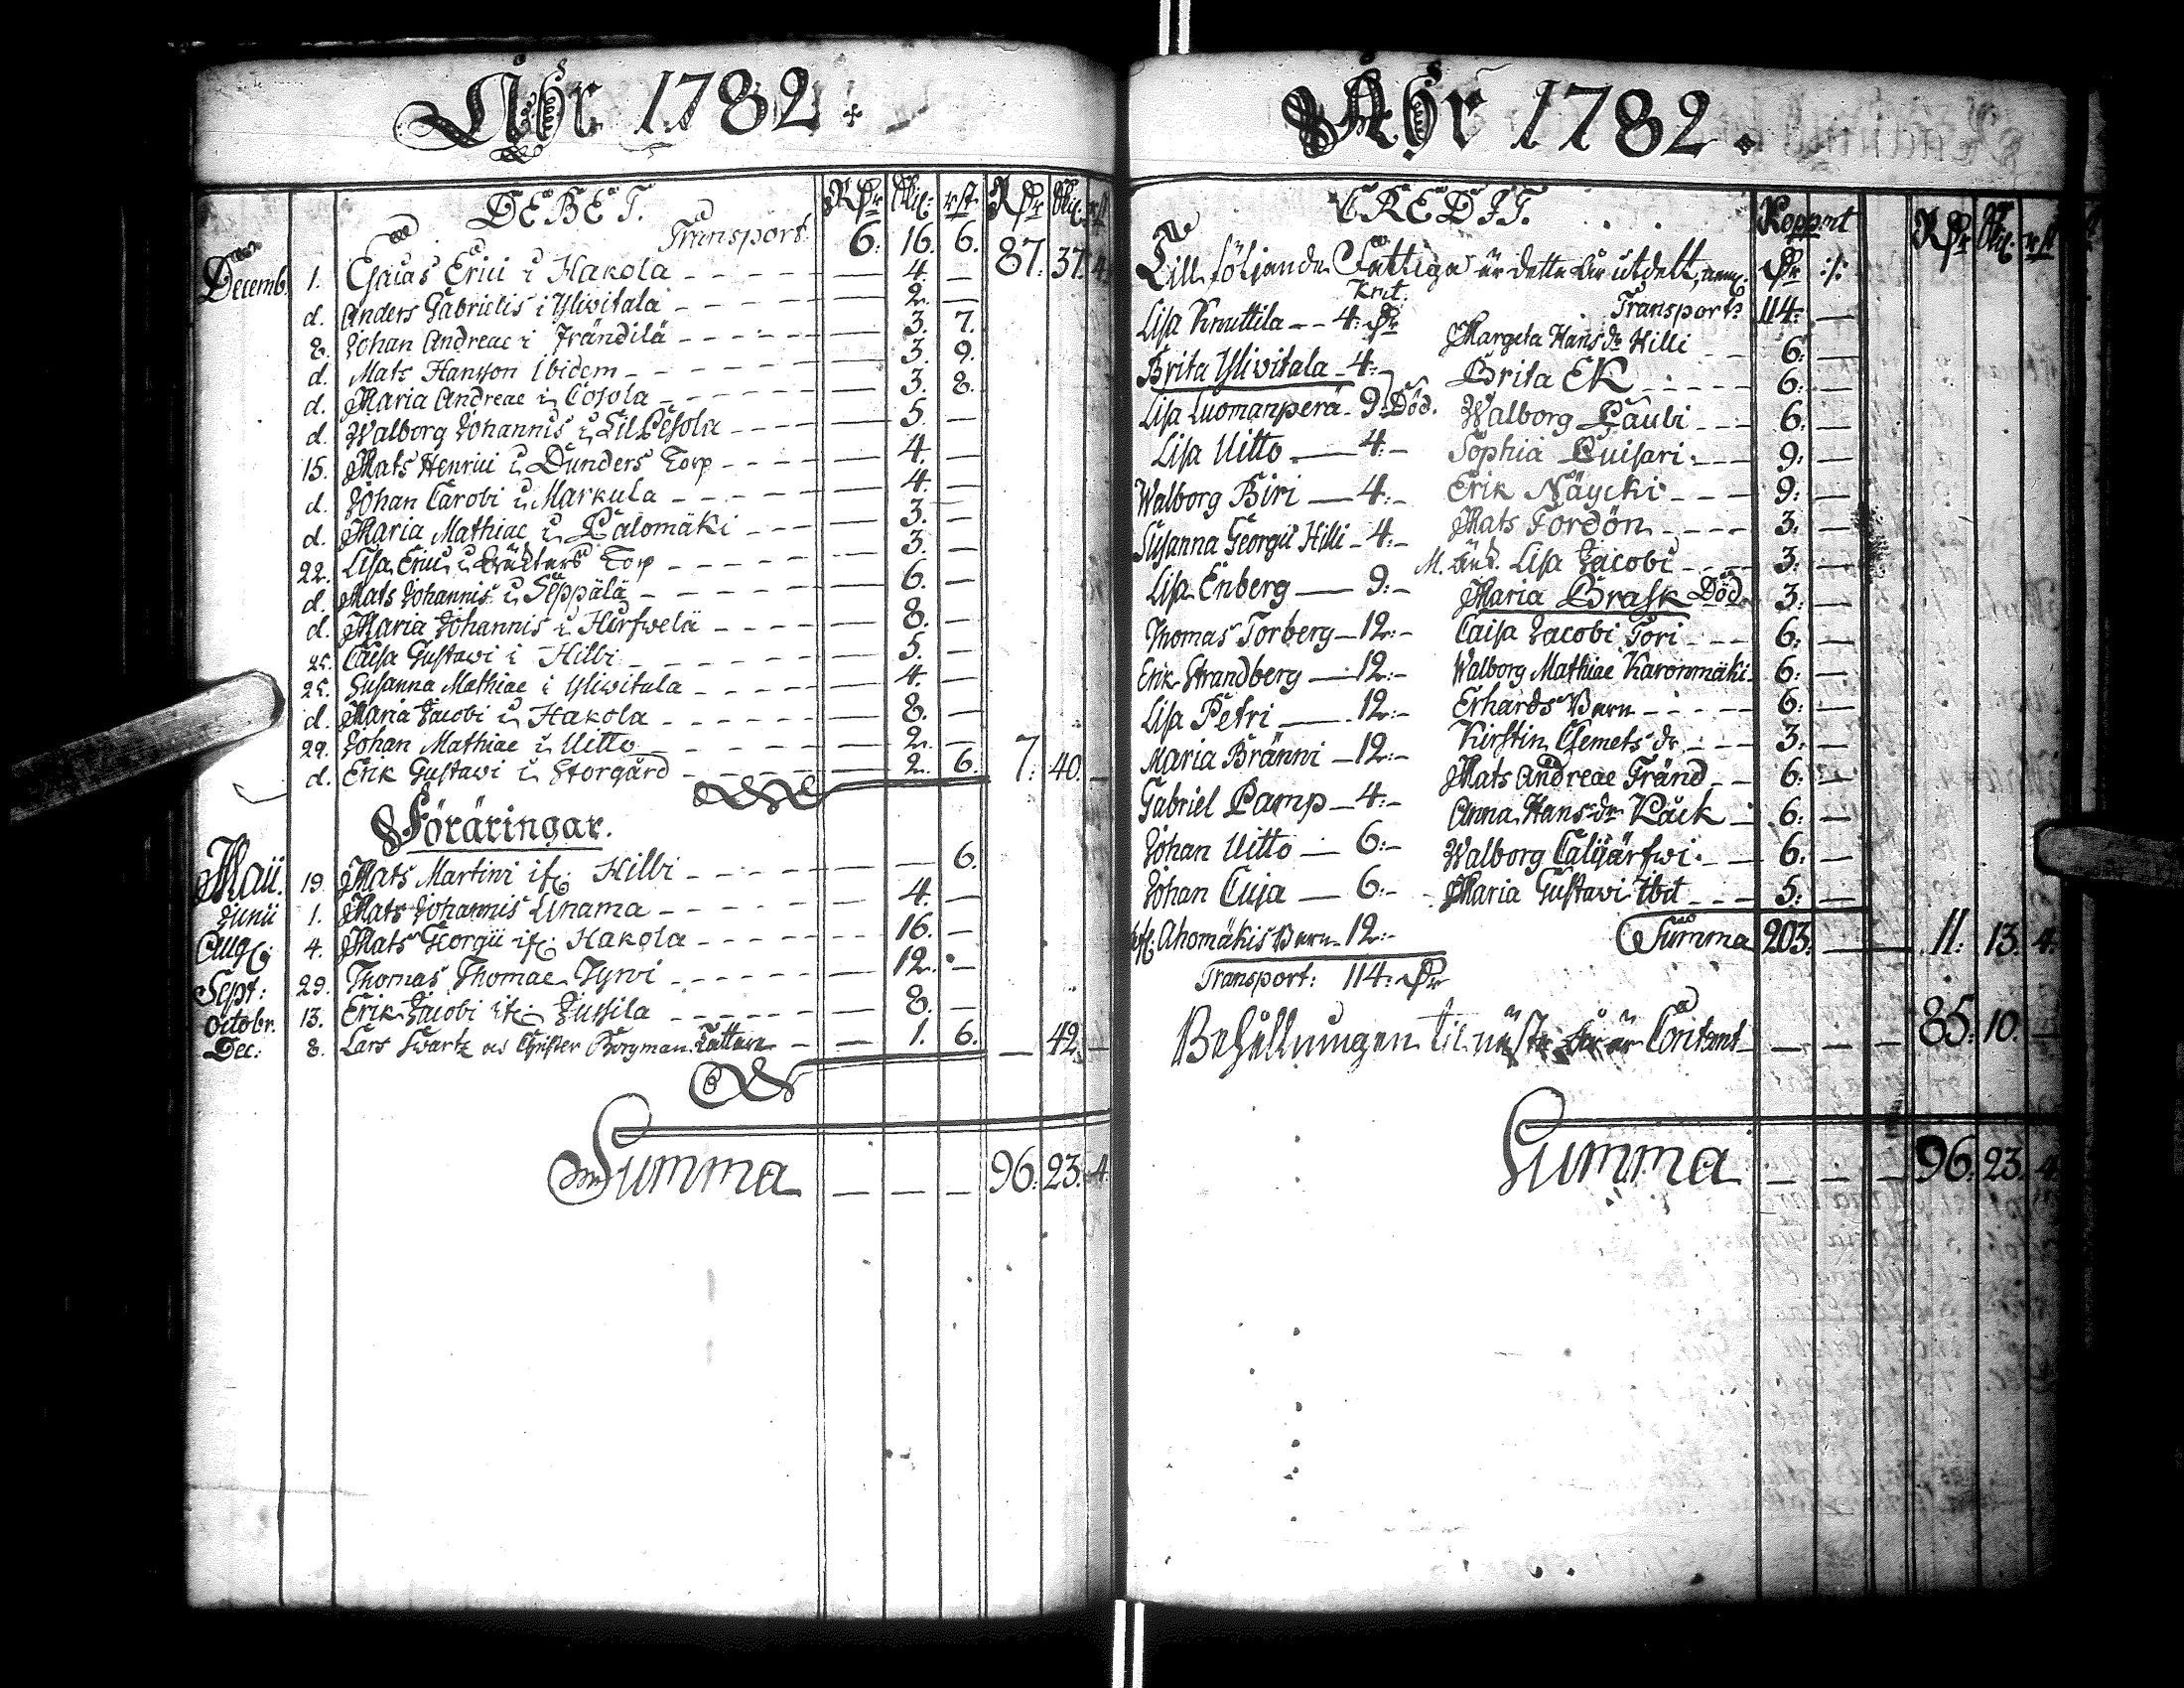 Åhr 1782.
DEBET. RDr Skil: rst. RDr Skil: rst
Transport. 6. 16. 6. 87. 37. 4.
Decemb. 1. Esaias Erici i Hakola — 4. —
d. Anders Gabrielis i Yliwitala — 2. —
8. Johan Andreae i Frändilä — 3. 7.
d. Mats Hansson ibidem — 3. 9.
d. Maria Andreae i Cosola — 3. 8.
d. Walborg Johannis i LilPesola — 5. —
15. Mats Henrici i Dunders Torp — 4. —
d. Johan Jacobi i Markula — 4. —
d. Maria Mathiae i Palomäki — 3. —
22. Lisa Erici i Torp — 3. —
d. Mats Johannis i Seppälä — 6. —
d. Maria Johannis i Hirfwelä — 8. —
25. Caisa Gustawi i Hilbi — 5. —
25. Susanna Mathiae i Yliwitala — 4. —
d. Maria Jacobi i Hakola — 8. —
29. Johan Mathiae i Uitto — 2. —
d. Erik Gustawi i Storgård — 2. 6. 7. 40. —
Föräringar.
Maii. 19. Mats Martini ifr. Hilbi — — 6.
Junii 1. Mats Johannis Unama — 4. —
Aug: 4. Mats Georgii ifr. Hakola — 16. —
Sept: 29. Thomas Thomae Tyrwi — 12. —
Octobr. 13. Erik Jacobi ifr. Jussila — 8. —
Dec: 8. Lars Swartz Christer Borgman — 1. 6. — 42. —
Summa — — — 96. 23. 4.
Åhr 1782.
CREDIT. Koppmt RDr Skil: rst
Till följande Fattiga är dette år utdelt, neml: Dr
Kmt. Transport: 114: —
Lisa Knuttila — 4: Dr Margeta Hans dr Hilli 6: —
Brita Yliwitala 4: — Brita EK 6: —
Lisa Luomanperä 9: Död. Walborg Paubi 6: —
Lisa Uitto 4: — Sophia Quisari 9: —
Walborg Biri 4: — Erik Näycki 9: —
Susanna Georgii Hilli 4: — Mats Fordön 3: —
Lisa Enberg 9: — Lisa Jacobi 3: —
Thomas Torberg 12: — Maria Brask Död. 3: —
Erik Strandberg 12: — Caisa Jacobi Tori 6: —
Lisa Petri 12: — Walborg Mathiae Karonmäki 6: —
Maria Bränni 12: — Erhards Barn 6: —
Gabriel Pamp 4: — Kirstin Clemets dr 3: —
Johan Uitto 6: — Mats Andreae Fränd 6: —
Johan Cuja 6: — Anna Hans dr Kåck 6: —
Ahomäkis Barn 12: — Walborg Caljärfwi 6: —
Transport: 114: Dr Maria Gustawi 5: —
Summa 203: — 11: 13. 4.
Behållningen til näste år är Contant — — — 85. 10. —
Summa — — — 96. 23. 4.